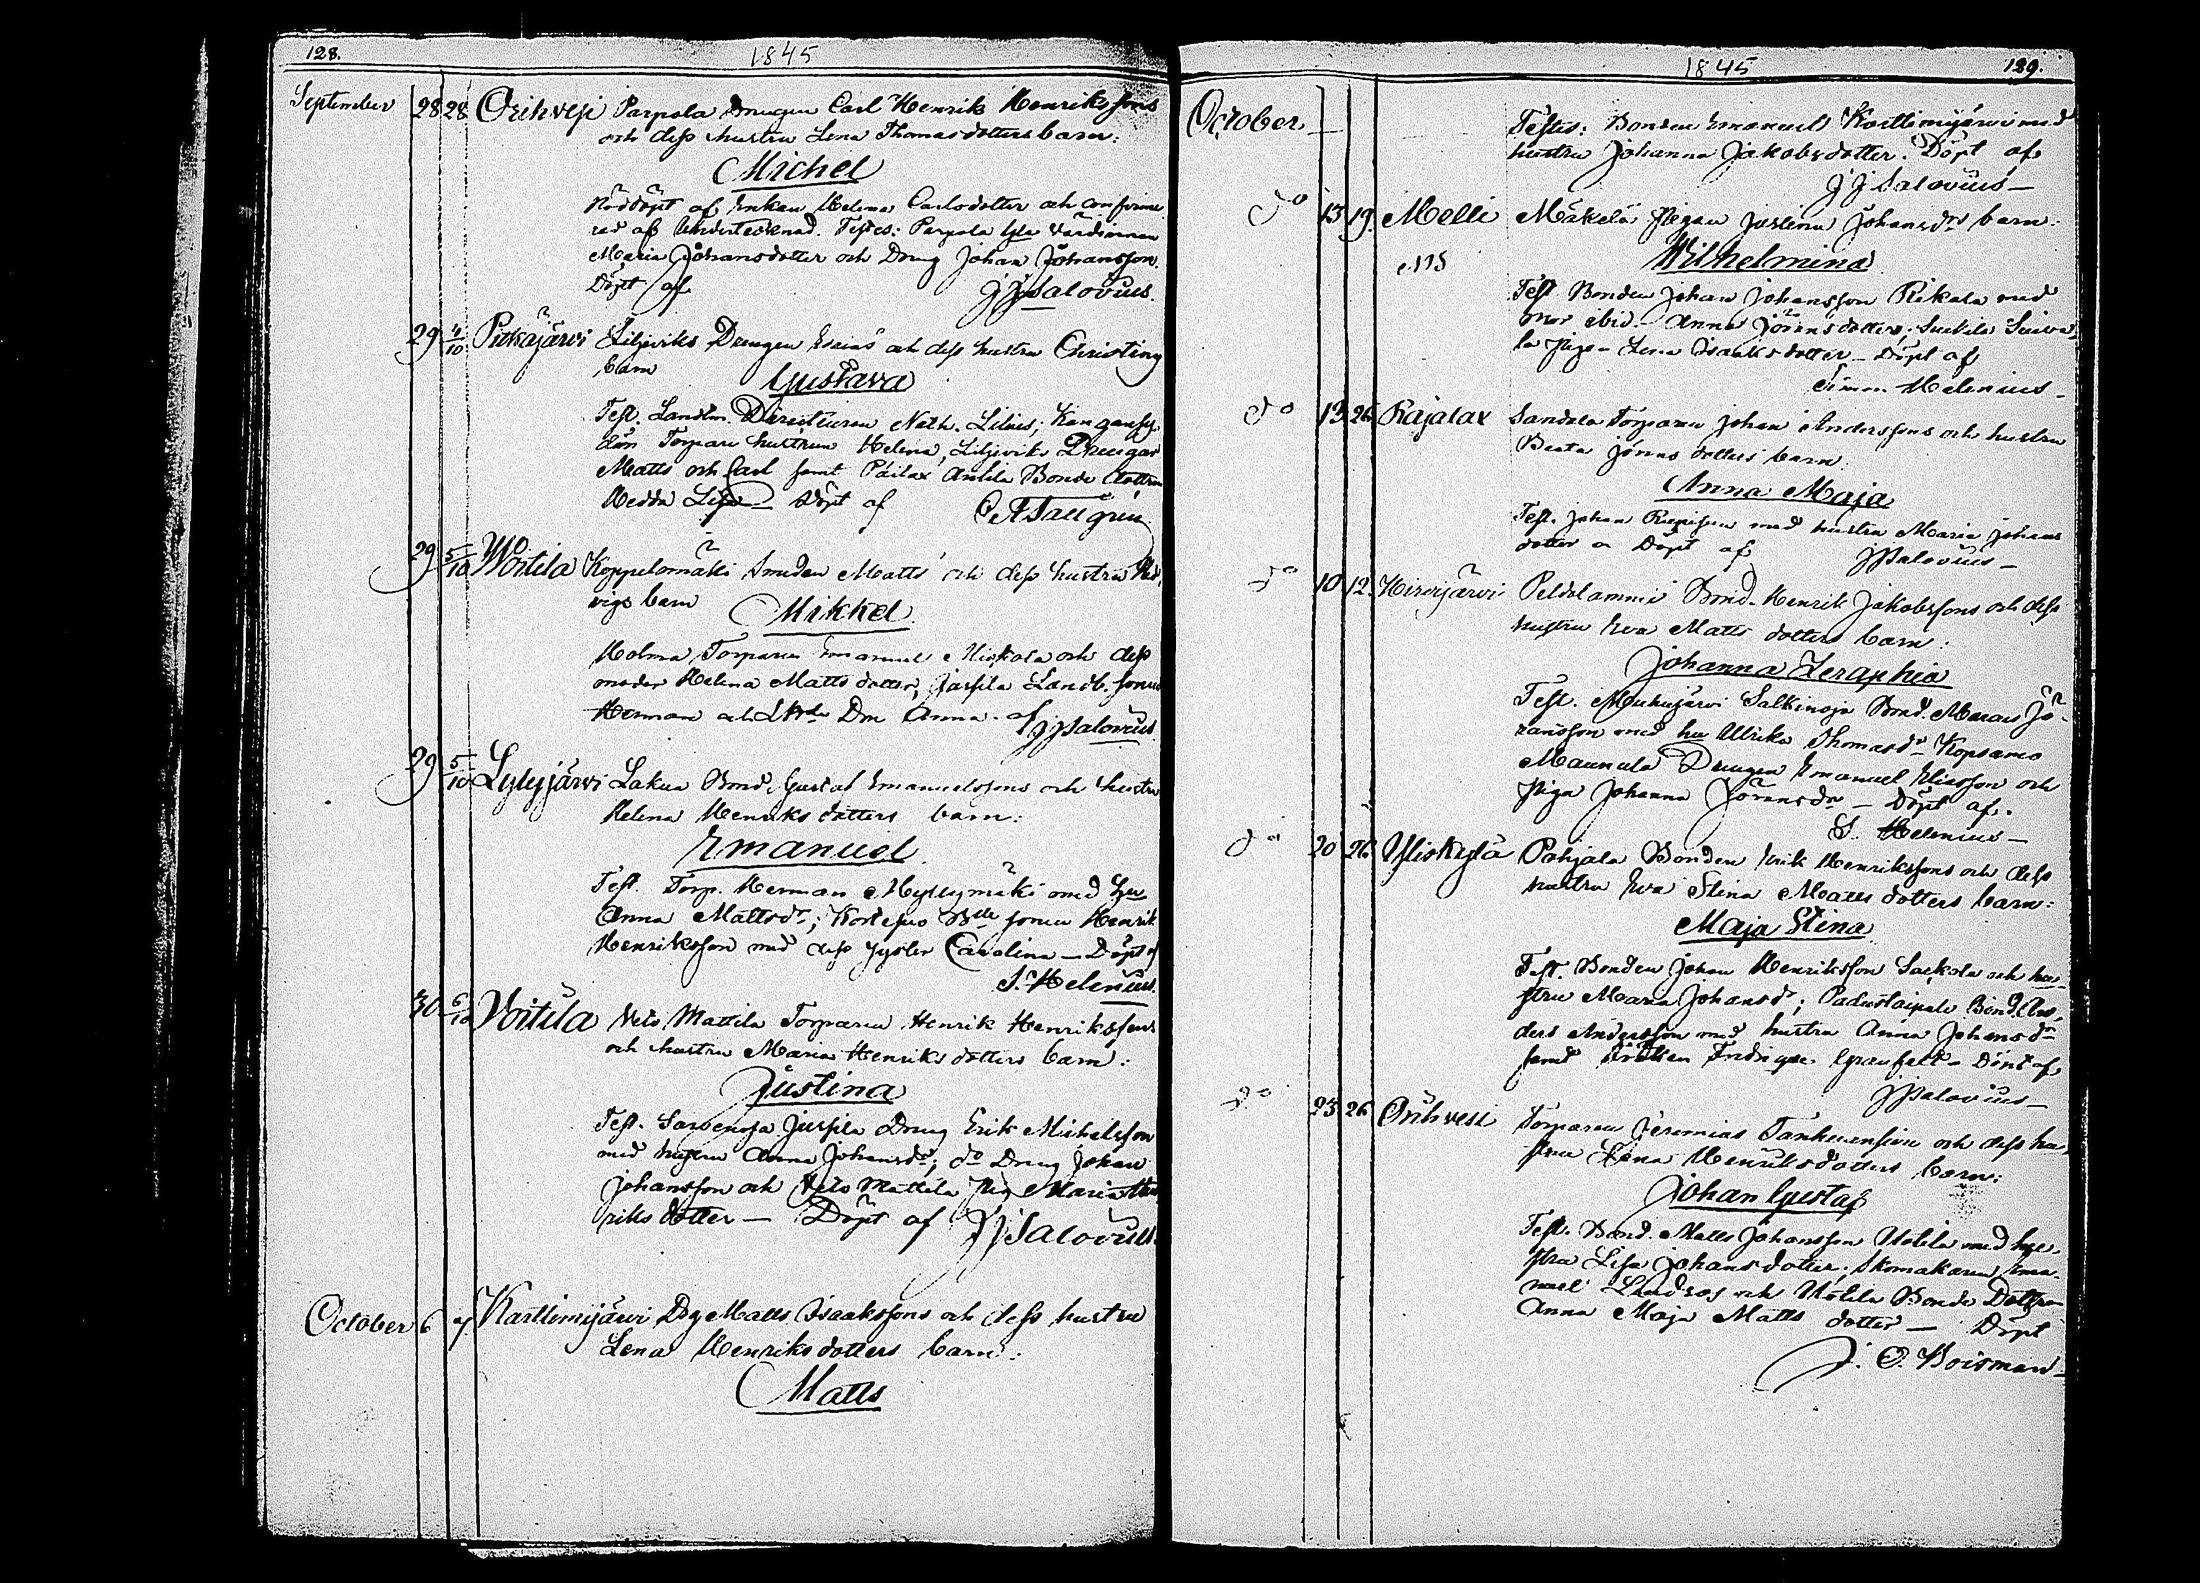 128.
1845
September 28 28 Orihvesi Parpola Drängen Carl Henrik Henrikssons
och dess hustru Lena Thomasdotters barn:
Michel
Nöddöpt af Enkan Helena Carlsdotter och confirme
rad af Undertecknad. Testes: Parpola Värdinnan
Maria Johansdotter och Dräng Johan Johansson.
Döpt af JJSalovius.
29 4/10 Pitkäjärvi Liljeviks Drängen Esaias och dess hustru Christinæ
barn
Gustava
Test. Landtm. Directeuren Nath. Lilius;
Torpare hustrun Helena, Liljeviks Drängar
Matts och Carl samt Päilax Anttila Bonde dottren
Hedda Lisa Döpt af CATallgrén
29 5/10 Woitila Koppelomäki Smeden Matts och dess hustru Hed,
vigs barn Mikkel.
Holma Torparen Emanuel och dess
moder Helena Matts dotter, Jussila Landb. sonen
Herman och Dm Anna. af JJSalovius.
29 5/10 Lylyjärvi Lakua Bond. Gustaf Emanuelssons och hustru
Helena Henriks dotters barn:
Emanuel
Test. Torp. Herman Myllymäki med hu
Anna Mattsdr; sonen Henrik
Henriksson med dess syster Carolina — Döpt af
S. Helenius.
30 6/10 Voitila Mattila Torparen Henrik Henrikssons
och hustru Maria Henriks dotters barn:
Justina
Test. Jussila Dräng Erik Michelsson
med hustru Anna Johansdr; do Dräng Johan
Johansson och Mattila Pig Maria Hen
riks dotter — Döpt af JJSalovius.
October 6 7 Karttimijärvi Dg Matts Isaakssons och dess hustru
Lena Henriksdotters barn:
Matts
1845
129.
October
Testes: Bonden Emanuel Karttimijärvi med
hustru Johanna Jakobsdotter. Döpt af
JJSalovius —
do 13 19. Melli Mäkelä Pigan Justina Johansdrs barn:
Wilhelmina
Test Bonden Johan Johansson Rekala med
mor ibid. Anna Jöransdotter;
la Piga Lena Isaaksdotter — Döpt af
Simon Helenius —
do 13 26 Rajalax Sandala Torparen Johan Anderssons och hustru
Beata Jöransdotters barn
Anna Maja
Test. Johan med hustru Maria Johans
dotter Döpt af JJSalovius —
do 10 12. Hirvijärvi Peldolammi Bond. Henrik Jakobssons och dess
hustru Eva Matts dotters barn:
Johanna Zeraphia
Test. Salkinoja Bond. Marcus Jö-
ransson med hu Ulrika Thomasdr Kopsamo
Maunula Drängen Emanuel Eliasson och
Piga Johanna Jöransdr — Döpt af.
S. Helenius —
do 20 26. Yliskylä Pohjala Bonden Erik Henrikssons och dess
hustru Eva Stina Matts dotters barn:
Maja Stina
Test. Bonden Johan Henriksson Sackola och hu-
stru Maria Johansdr; Padustaipale Bond. An-
ders Andersson med hustru Anna Johansdr
samt Fröken Fredrique Granfelt — Döpt af
JJSalovius —
do 23 26 Orihvesi Torparen Jeremias och dess hu-
stru Lena Henriksdotters barn:
Johan Gustaf
Test. Bond. Matts Johansson Uotila med hu-
stru Lisa Johansdotter; Skomakaren Ema-
nuel Lindros och Uotila Bonde Dottren
Anna Maja Matts dotter — Döpt
J. O. Boisman —